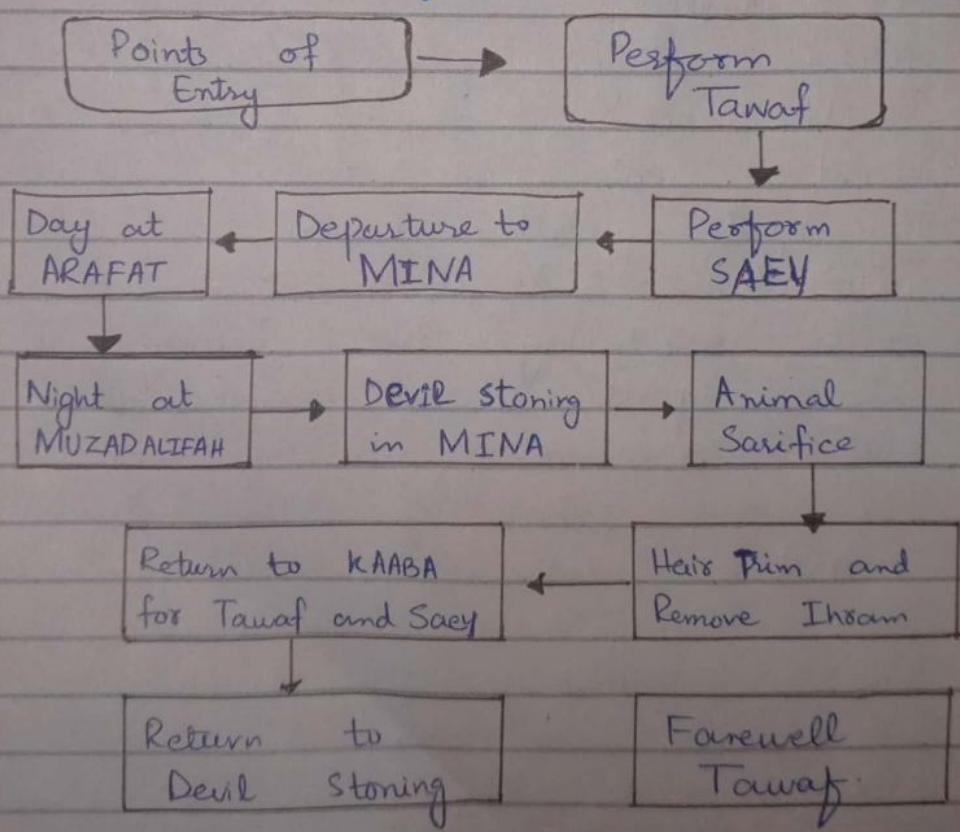 Points of
Entry
Perform
Tawaf
Perform
SAEY
Departure to
MINA
Day at
ARAFAT
Night at
MUZADALIFAH
Devil stoning
in MINA
Animal
Sarifice
Hair Trim and
Remove Ihram
Return to KAABA
for Tawaf and Saey
Return to
Devil stoning
Farewell
Tawaf.